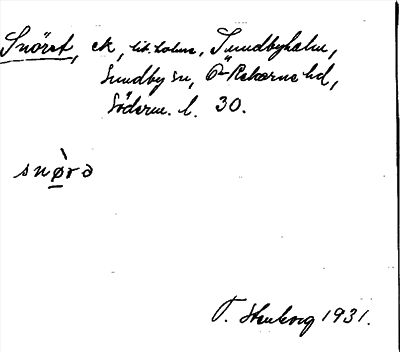 Snöret, ek, lit. holme, Sundbyholm,
Sundby sn, Ö-Rekarne hd,
Söderm. l. 30.
snø̀rə
1931.